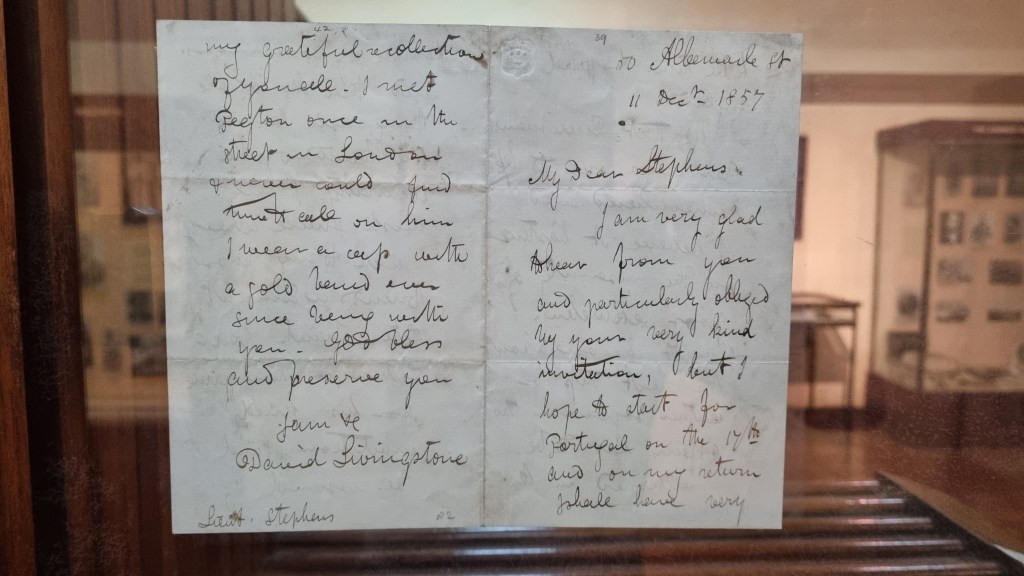 39
50 Albemarle St
11 Decr 1857
My Dear Stephens.
I am very glad
to hear from you
and particularly obliged
by your very kind
invitation, but I
hope to start for
Portugal on the 17th
and on my return
shall have very
42
my grateful recollection
of you all. I met
once in the
street in London
& never could find
time to call on him
I wear a cap with
a gold band ever
since being with
you. God bless
and preserve you
I am &c
David Livingstone
Lieut. Stephens